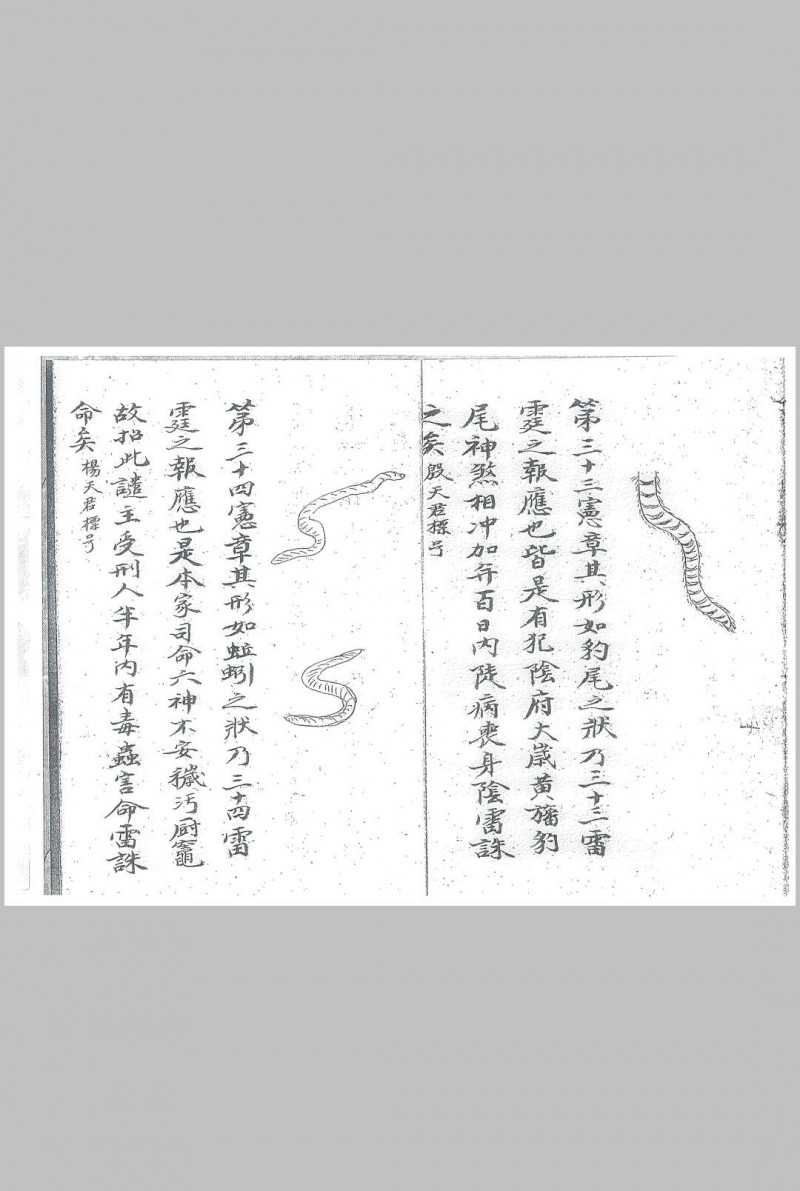 第三十三憲章其形如豹尾之狀乃三十三雷
霆之報應也皆是有犯陰府大歲黃旛豹
尾神煞相冲加弃百日內陡病喪身陰雷誅
之矣殷天君標号
第三十四憲章其形如蚯蚓之狀乃三十四雷
霆之報應也是本家司命六神不安穢污厨竈
故招此譴主受刑人半年內有毒蟲害命雷誅
命矣楊天君標号